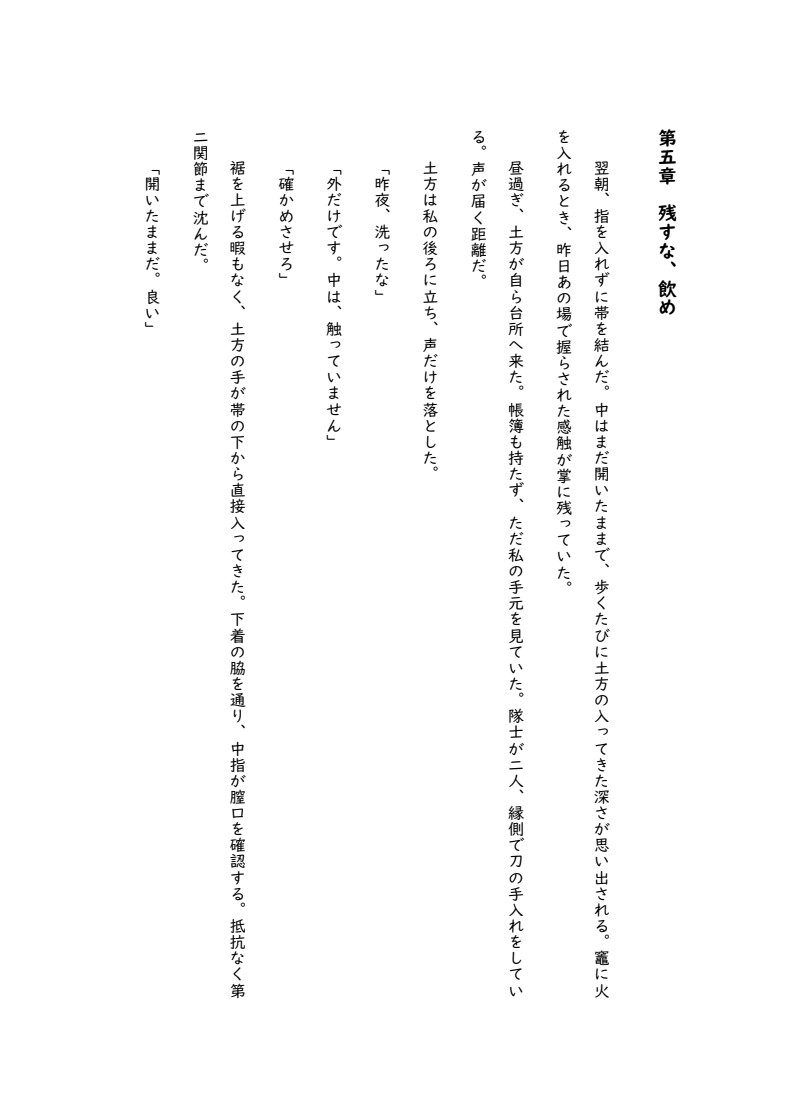 第五章　残すな、飲め
翌朝、指を入れずに帯を結んだ。中はまだ開いたままで、歩くたびに土方の入ってきた深さが思い出される。竈に火
を入れるとき、昨日あの場で握らされた感触が掌に残っていた。
昼過ぎ、土方が自ら台所へ来た。帳簿も持たず、ただ私の手元を見ていた。隊士が二人、縁側で刀の手入れをしてい
る。声が届く距離だ。
土方は私の後ろに立ち、声だけを落とした。
「昨夜、洗ったな」
「外だけです。中は、触っていません」
「確かめさせろ」
裾を上げる暇もなく、土方の手が帯の下から直接入ってきた。下着の脇を通り、中指が膣口を確認する。抵抗なく第
二関節まで沈んだ。
「開いたままだ。良い」